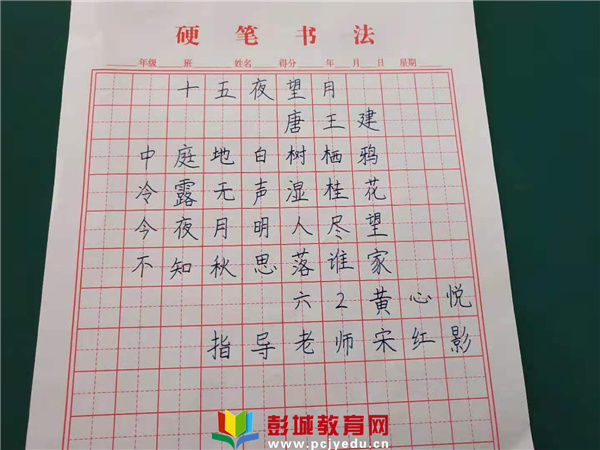 硬笔书法
年级 班 姓名 得分 年 月 日 星期
十五夜望月
唐王建
中庭地白树栖鸦
冷露无声湿桂花
今夜月明人尽望
不知秋思落谁家
六2黄心悦
指导老师宋红影
彭城教育网
www.pcjyedu.cn